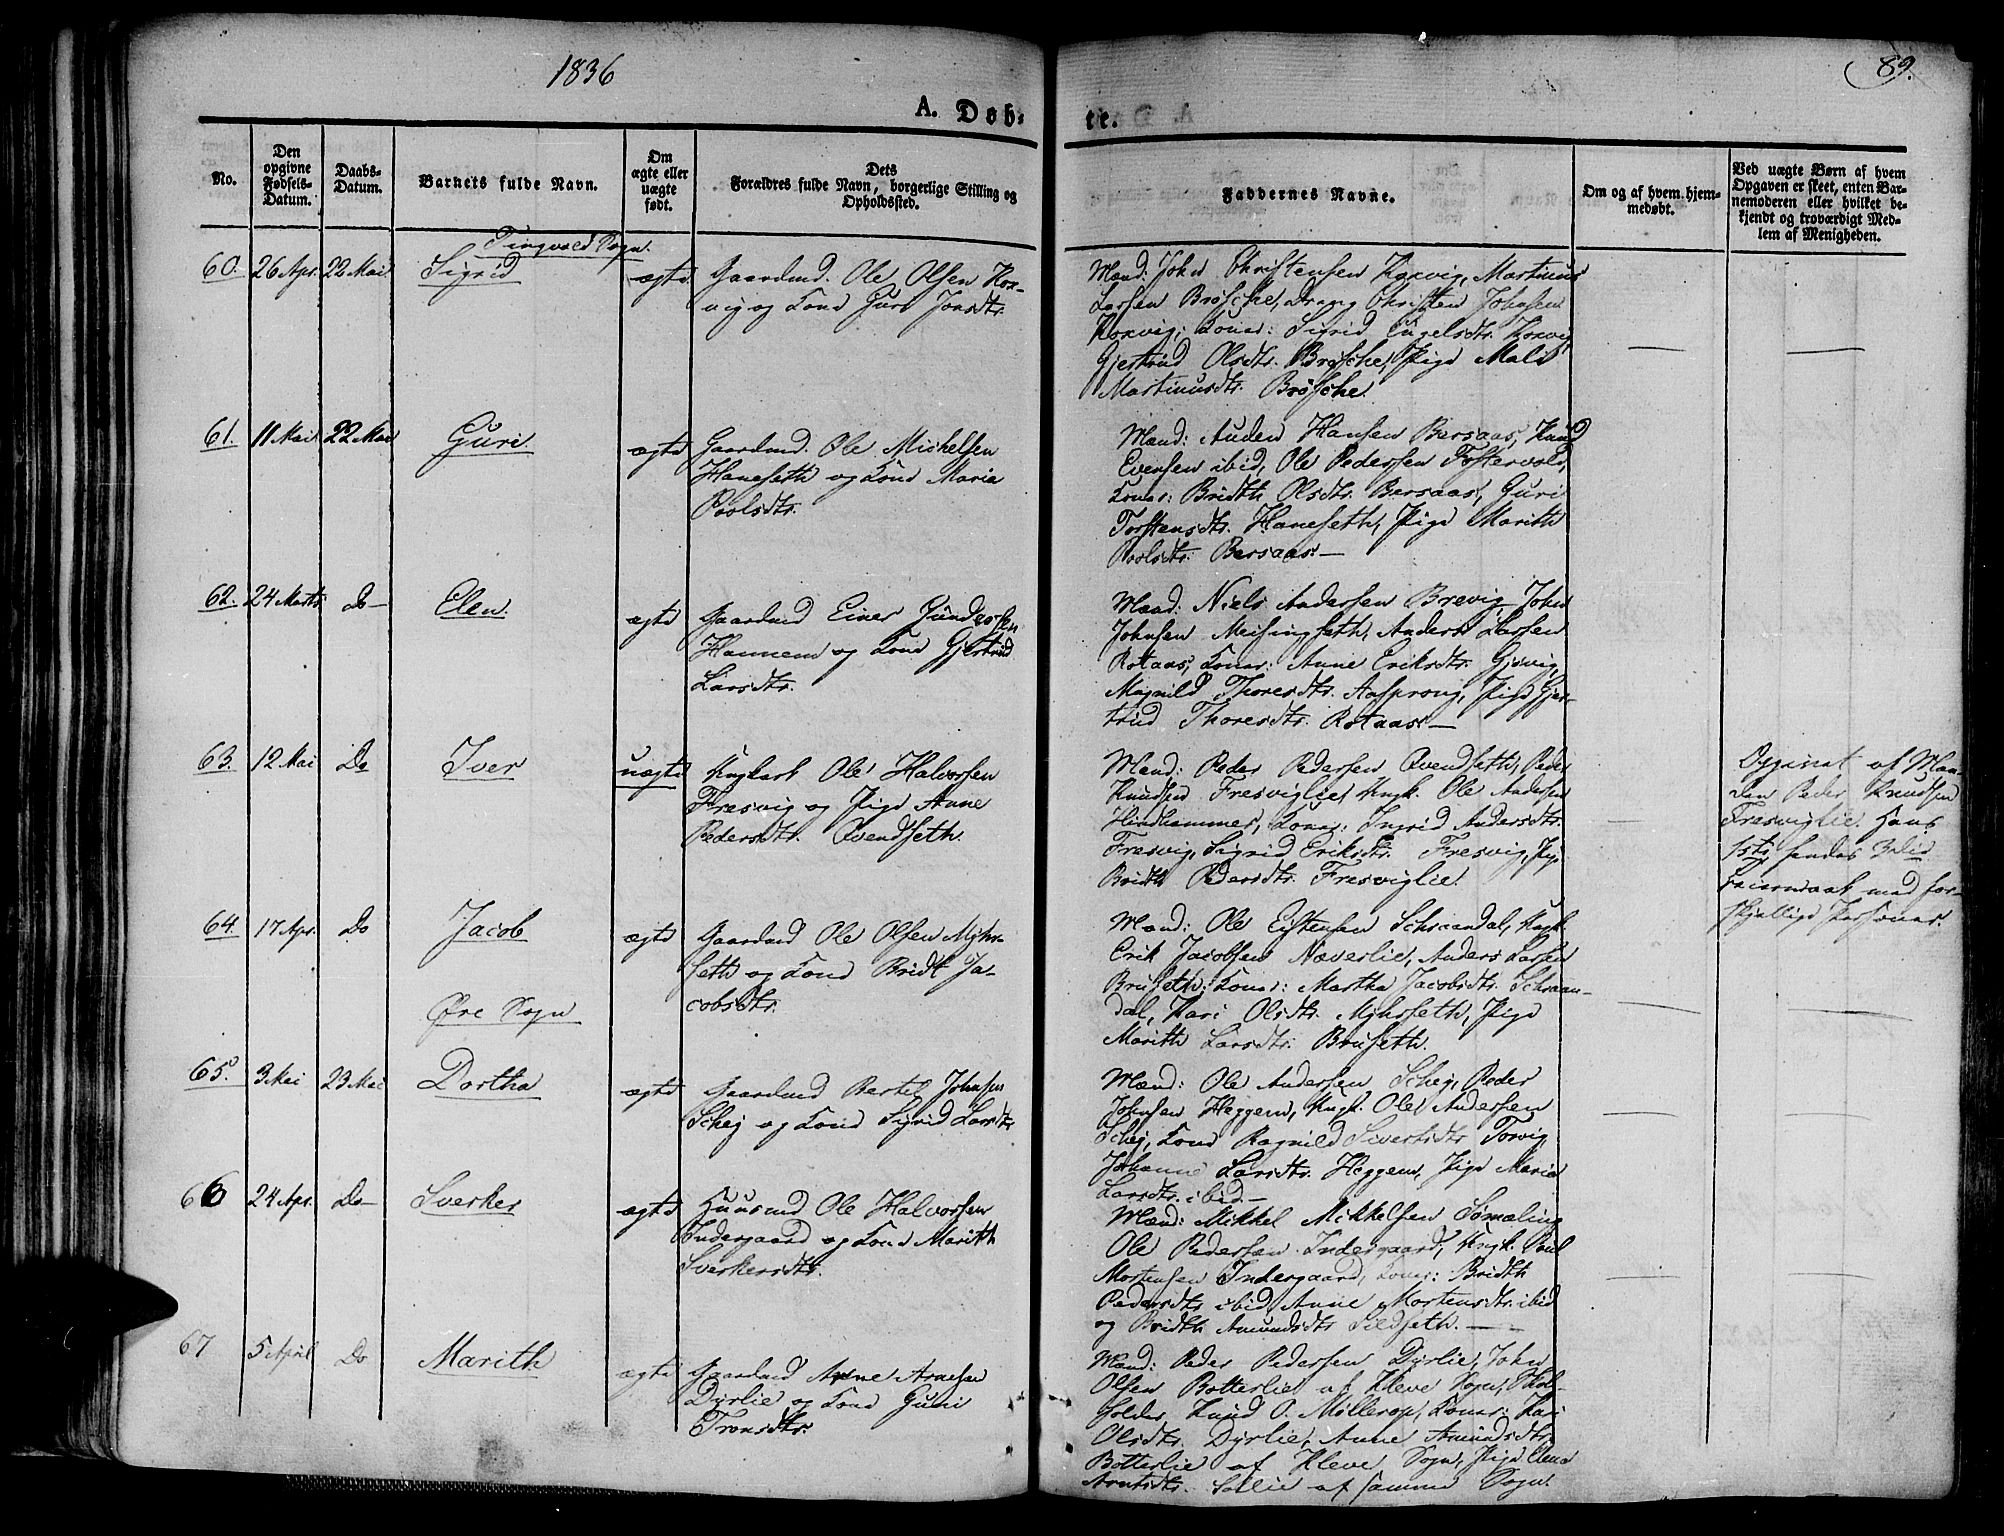 1836
89.
A. Døb-
te.
No.
Den opgivne Fødsels-Datum.
Daabs-Datum.
Barnets fulde Navn.
Om ægte eller uægte født.
Dets Forældres fulde Navn, borgerlige Stilling og Opholdssted.
Faddernes Navne.
Om og af hvem hjem-
medøbt.
Ved uægte Børn af hvem
Opgaven er skeet, enten Bar-
nemoderen eller hvilket be-
kjendt og troværdigt Med-
lem af Menigheden.
Tingvold Sogn.
60. 26 Apr. 22 Mai Sigrid ægte
Gaardmd. Ole Olsen Kor-
vig og Kone Guri Jonsdtr.
Mænd: John Christensen Korvig, Martinus
Larsen Brøsche, Dreng Christen Johnsen
Korvig; Koner: Sigrid Engelsdtr. Korvig
Gjertrud Olsdtr. Brøsche, Pige Mali
Martinusdtr. Brøsche.
61. 11 Mai 22 Mai Guri. ægte
Gaardmd. Ole Michelsen
Haneseth og Kone Maria
Poolsdtr.
Mænd: Auden Hansen Bersaas, Knud
Evensen ibid, Ole Pedersen Fostervold,
Koner: Bridth Olsdtr. Bersaas, Guri
Torstensdtr. Haneseth, Pige Marith
Poolsdtr. Bersaas.—
62. 24 Marts do— Elen. ægte
Gaardmd Einer Gundersen
Hannem og Kone Gjertrud
Larsdtr.
Mænd: Niels Andersen Brevig, John
Johnsen Meisingseth, Anders Larsen
Rotaas, Koner: Anne Eriksdtr. Gjevig,
Magnild Thoresdtr. Aasprong, Pige Gjer-
trud Thoresdtr. Rotaas.—
63. 12 Mai Do Iver uægte
Ungkarl Ole Halvorsen
Fresvig og Pige Anne
Pedersdtr. Qvendseth.
Mænd: Peder Pedersen Qvendseth, Peder
Knudsen Fresviglie, Ungk. Ole Andersen
Hindhammer, Koner: Ingrid Andersdtr.
Fresvig, Sigrid Eriksdtr. Fresvig, Pige
Bridth Pedersdtr. Fresviglie.
Opgivet af Man-
den Peder Knudsen
Fresviglie. Hans
1ste, hendes 3die
Leiermaal med for-
skjellige Personer.
64. 17 Apr. Do Jacob ægte
Gaardmd Ole Olsen Myhr-
seth og Kone Bridt Ja-
cobsdtr.
Mænd: Ole Eistensen Schraandal, Ungk.
Erik Jacobsen Næverlie, Anders Larsen
Bruseth; Koner: Martha Jacobsdtr. Schraan-
dal, Kari Olsdtr. Myhrseth, Pige
Marith Larsdtr. Bruseth.
Øre Sogn
65. 3 Mai 23 Mai Dortha ægte
Gaardmd Bertel Johnsen
Schej og Kone Sigrid Larsdtr
Mænd: Ole Andersen Schej, Peder
Johnsen Heggem, Ungk. Ole Andersen
Schej, Kone Ragnild Sivertsdtr Torvig
Johanne Larsdtr. Heggem, Pige Maria
Larsdtr. ibid—
66 24 Apr. Do— Sverker ægte
Huusmd Ole Halvorsen
Indergaard og Kone Marith
Sverkersdtr.
Mænd: Mikkel Mikkelsen Sømæling
Ole Pedersen Indergaard, Ungk. Poul
Mortensen Indergaard, Koner: Bridth
Pedersdtr ibid, Anne Mortensdtr. ibid
og Bridth Amundsdtr Sildseth.—
67 5 April Do Marith ægte
Gaardmd Arne Arnesen
Dyrlie og Kone Guri
Tronsdtr.
Mænd: Peder Pedersen Dyrlie, John
Olsen Botterlie af Kleve Sogn, Skol-
holder Knud O. Møllerop, Koner: Kari
Olsdtr. Dyrlie, Anne Amundsdtr.
Botterlie af Kleve Sogn, Pige Elen
Arntsdtr. Sollie af samme Sogn.